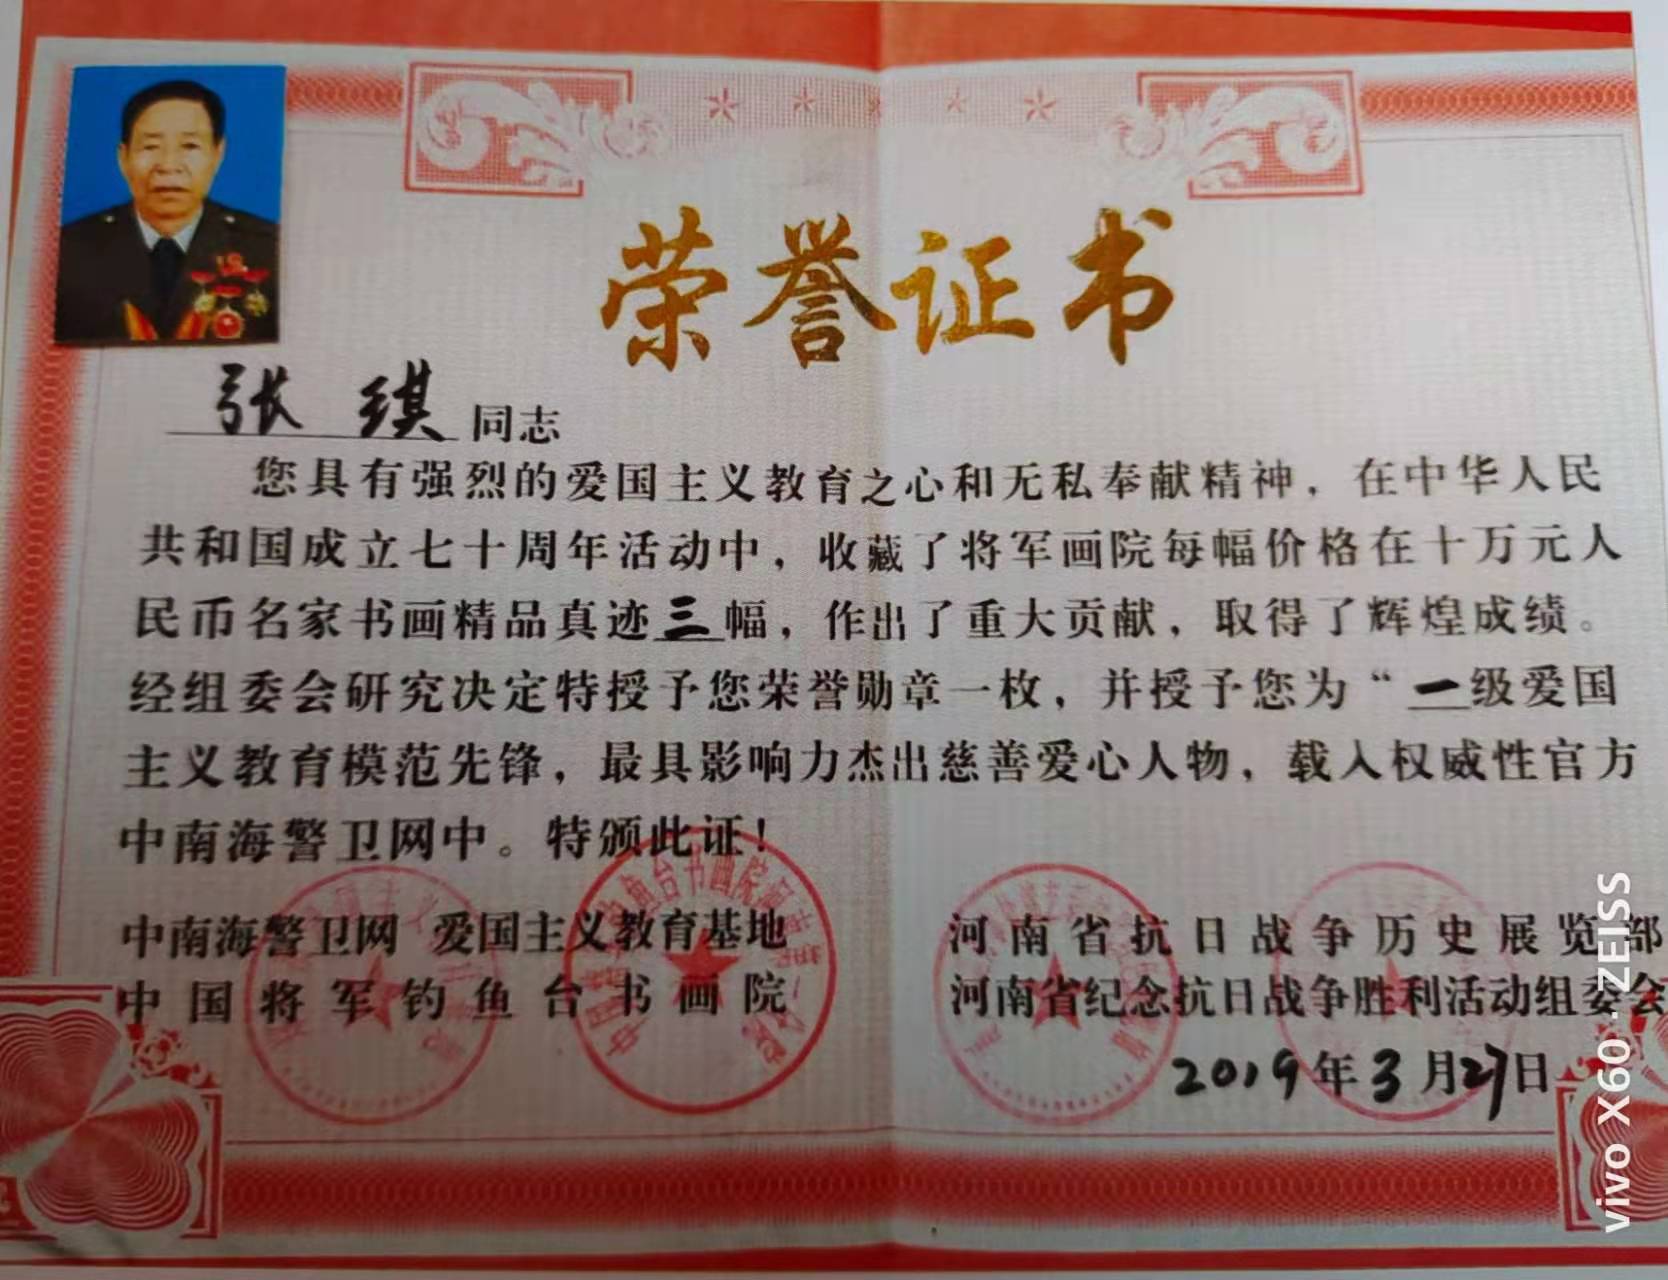 荣誉证书
张琪同志
您具有强烈的爱国主义教育之心和无私奉献精神，在中华人民
共和国成立七十周年活动中，收藏了将军画院每幅价格在十万元人
民币名家书画精品真迹三幅，作出了重大贡献，取得了辉煌成绩。
经组委会研究决定特授予您荣誉勋章一枚，并授予您为“一级爱国
主义教育模范先锋，最具影响力杰出慈善爱心人物，载入权威性官方
中南海警卫网中。特颁此证！
中南海警卫网 爱国主义教育基地
中国将军钓鱼台书画院
河南省抗日战争历史展览部
河南省纪念抗日战争胜利活动组委会
2019年3月27日
vivo X60 . ZEISS